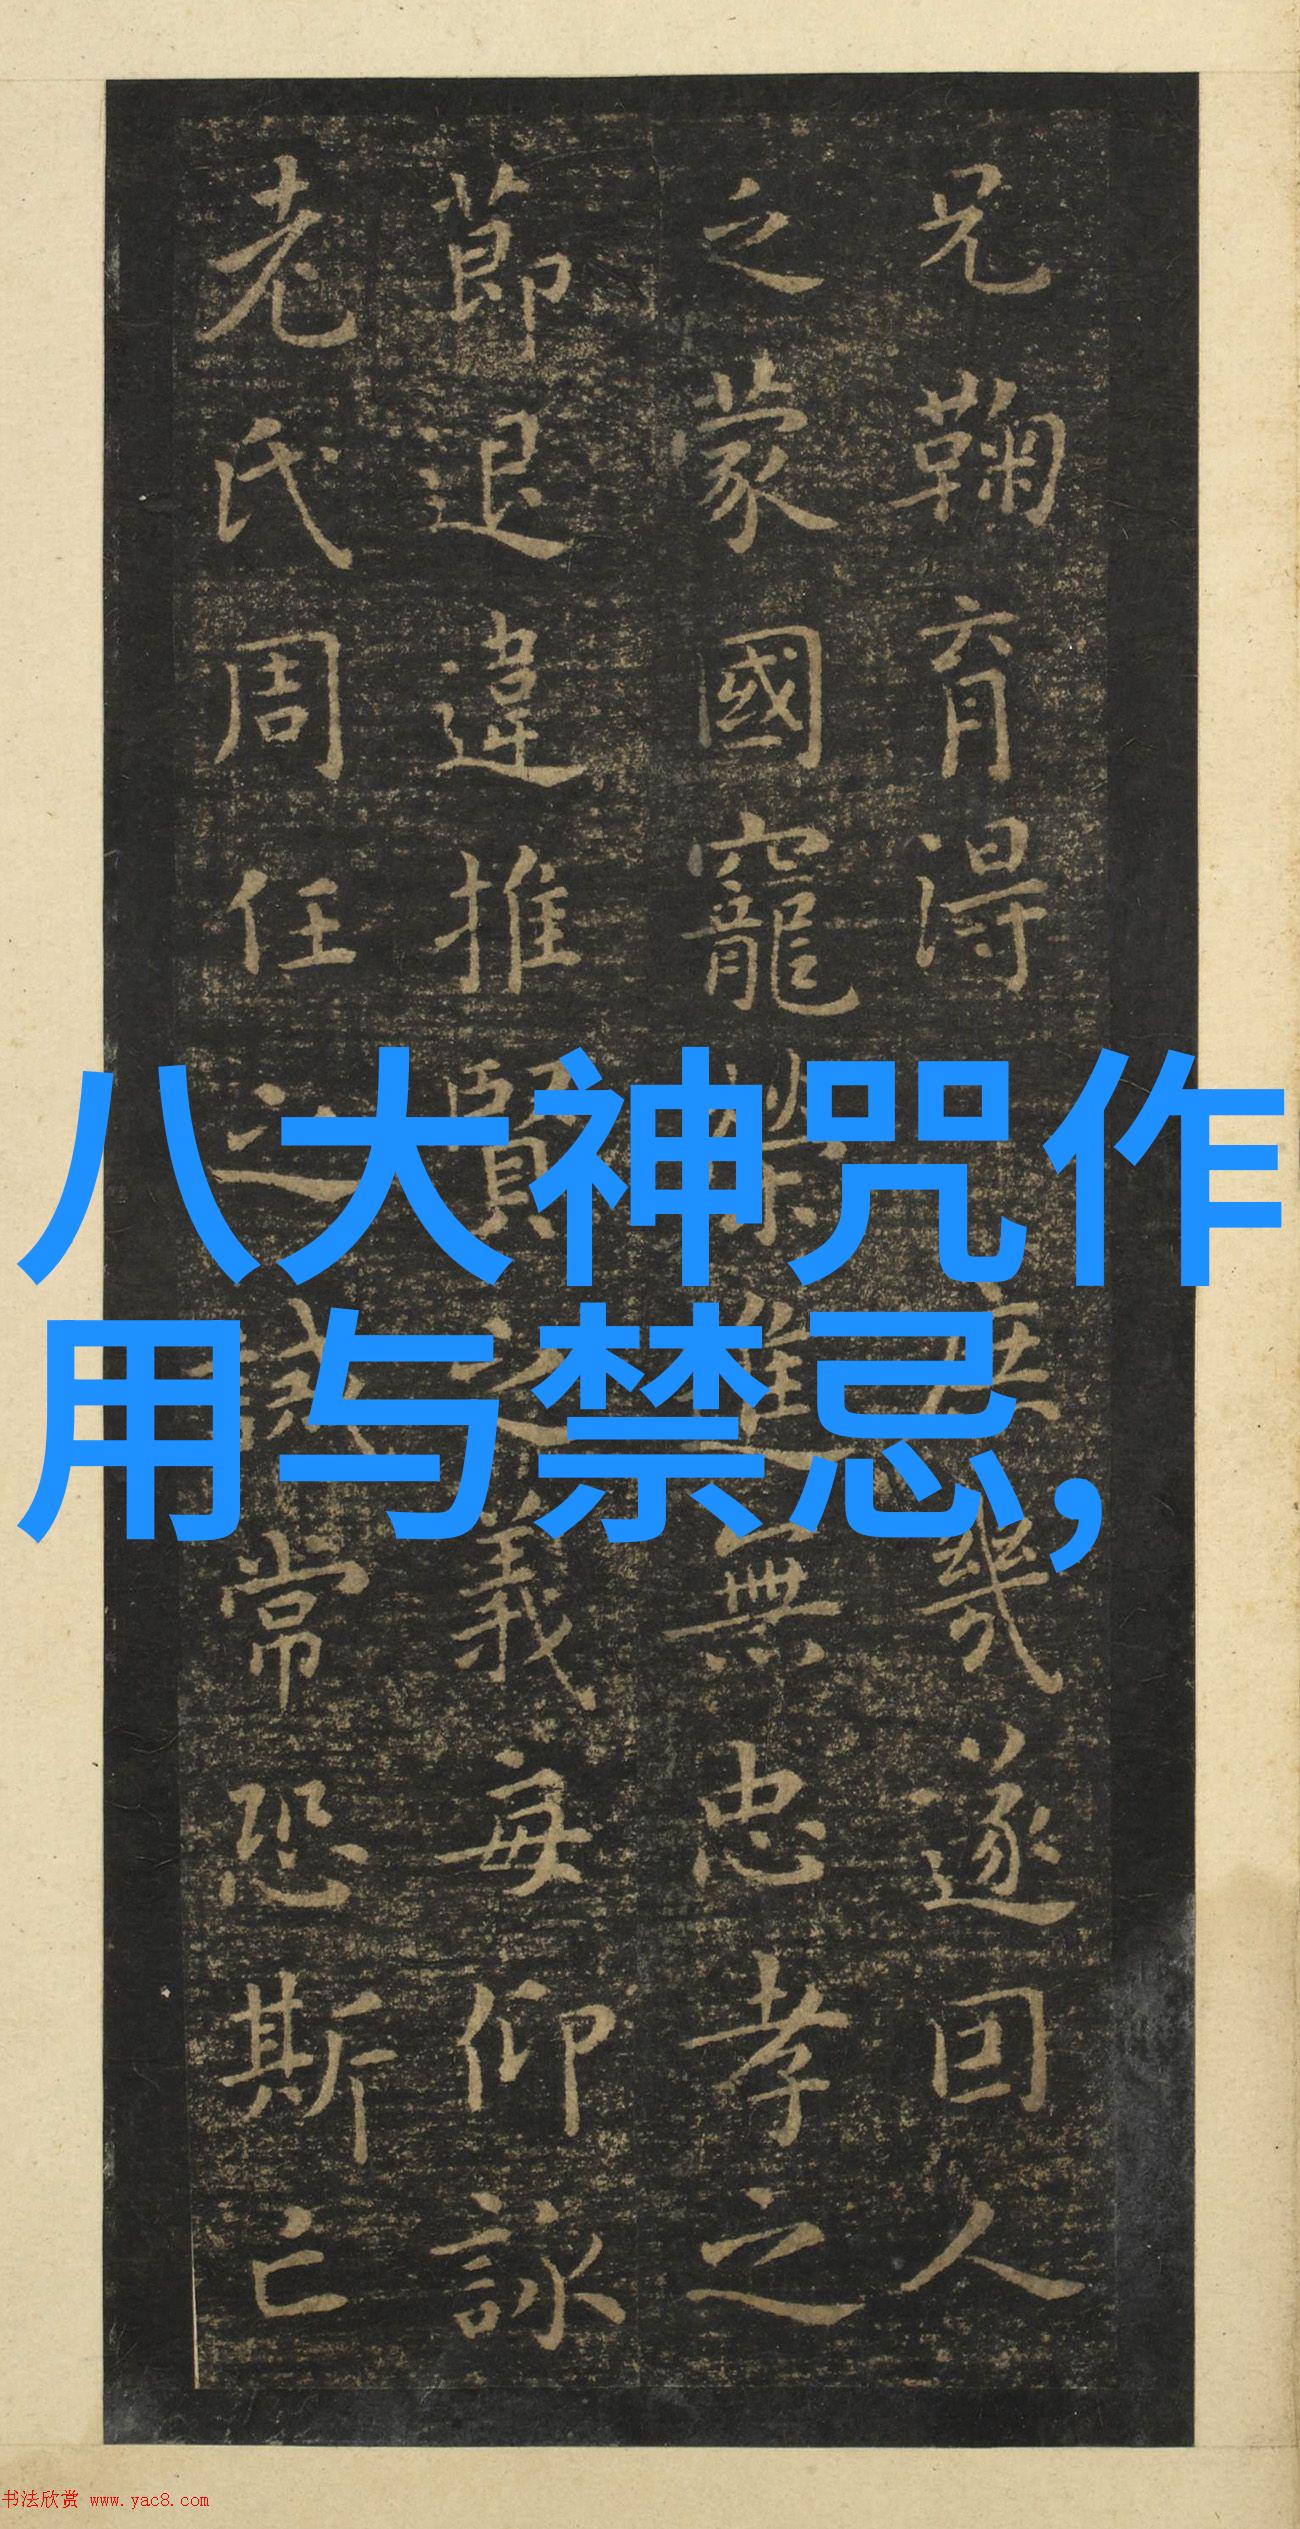 兄鞠育得庶幾遂因人
乏蒙國寵榮進無忠孝之
莭退違推賢之義每仰詠
老氏周任之誡常恐斯亡
八大神咒作
用与禁忌,
书法欣赏 www.yac8.com